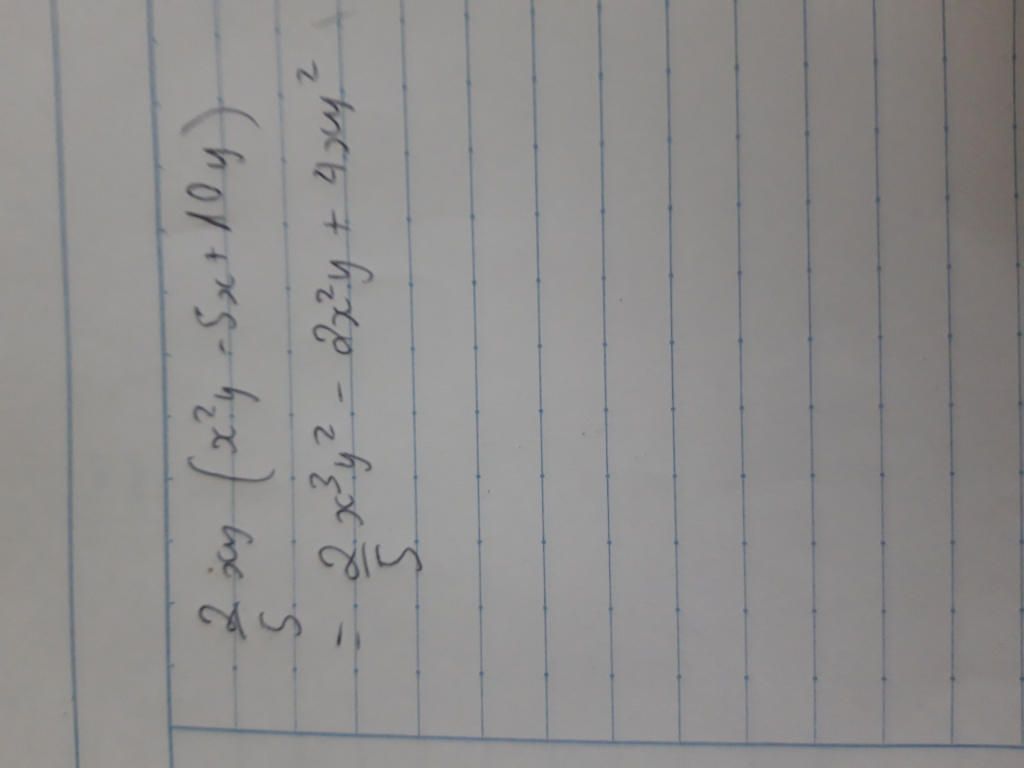 2/5 xy (x²y - 5x + 10y)
= 2/5 x³y² - 2x²y + 4xy²